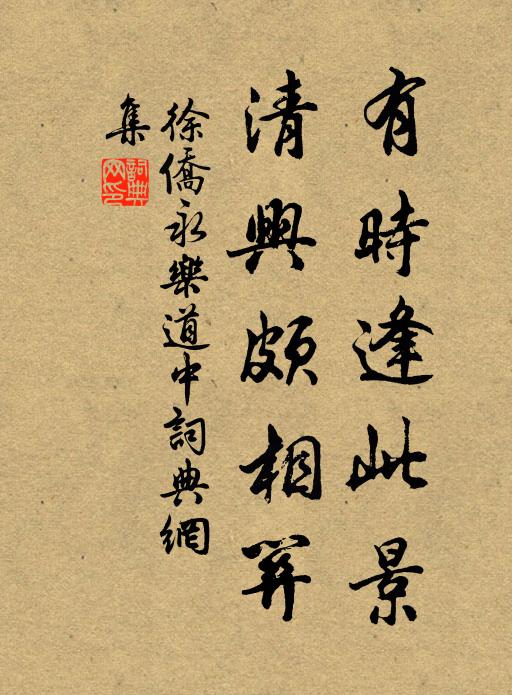 有時逢此景
清興頗相關
徐僑永樂道中詞典網
集
詞典
网印